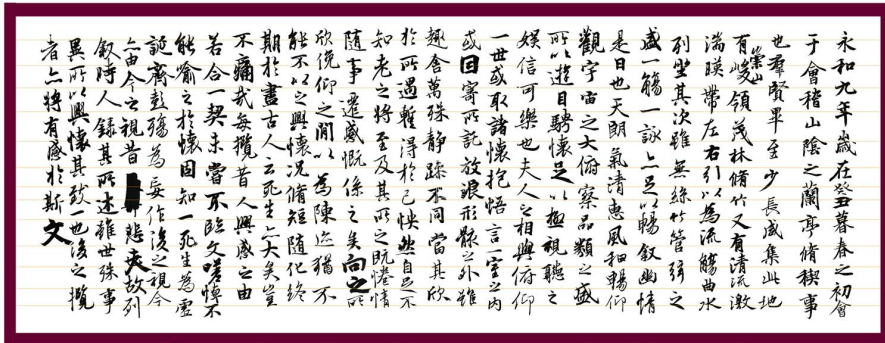 永和九年歲在癸丑暮春之初會
于會稽山陰之蘭亭脩稧事
也羣賢畢至少長咸集此地
有崇山峻領茂林脩竹又有清流激
湍暎帶左右引以為流觴曲水
列坐其次雖無絲竹管弦之
盛一觴一詠亦足以暢敘幽情
是日也天朗氣清惠風和暢仰
觀宇宙之大俯察品類之盛
所以遊目騁懷足以極視聽之
娛信可樂也夫人之相與俯仰
一世或取諸懷抱悟言一室之內
或因寄所託放浪形骸之外雖
趣舍萬殊靜躁不同當其欣
於所遇暫得於己怏然自足不
知老之將至及其所之既惓情
隨事遷感慨係之矣向之所
欣俛仰之閒以為陳迹猶不
能不以之興懷況脩短隨化終
期於盡古人云死生亦大矣豈
不痛哉每攬昔人興感之由
若合一契未嘗不臨文嗟悼不
能喻之於懷固知一死生為虛
誕齊彭殤為妄作後之視今
亦由今之視昔悲夫故列
敘時人錄其所述雖世殊事
異所以興懷其致一也後之攬
者亦將有感於斯文